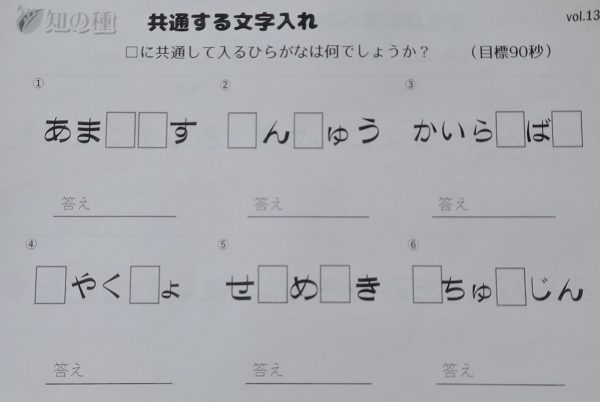 知の種 共通する文字入れ vol.13
□に共通して入るひらがなは何でしょうか？ （目標90秒）
① ② ③
あま□□す □ん□ゅう かいら□ば□
答え 答え 答え
④ ⑤ ⑥
□やく□ょ せ□め□き □ちゅ□じん
答え 答え 答え